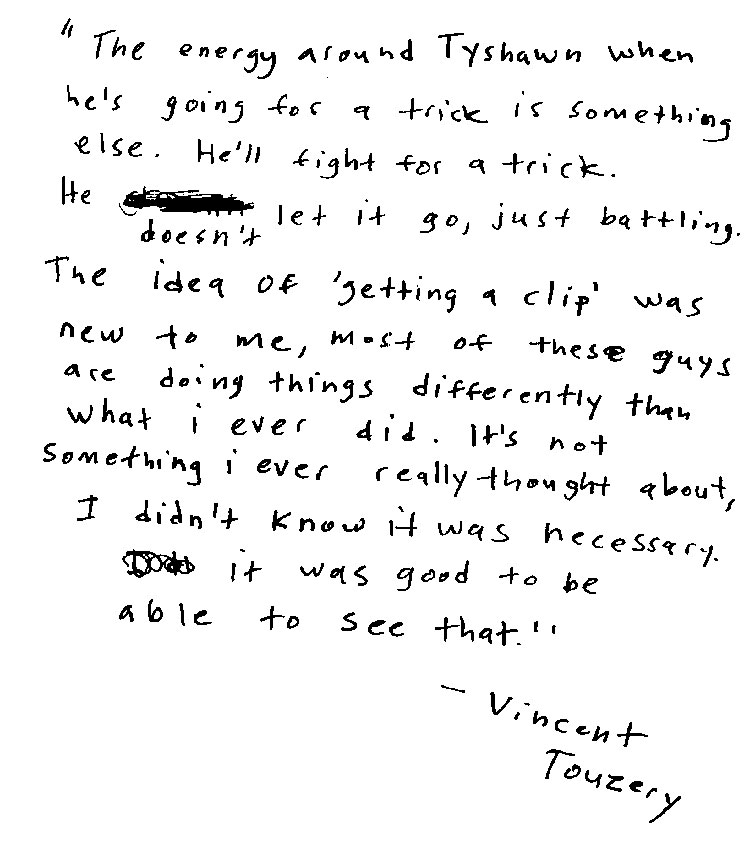 "The energy around Tyshawn when
he's going for a trick is something
else. He'll fight for a trick.
He let it go, just battling.
doesn't
The idea of 'getting a clip' was
new to me, most of these guys
are doing things differently than
what i ever did. It's not
something i ever really thought about,
I didn't know it was necessary.
it was good to be
able to see that."
- Vincent
Touzery